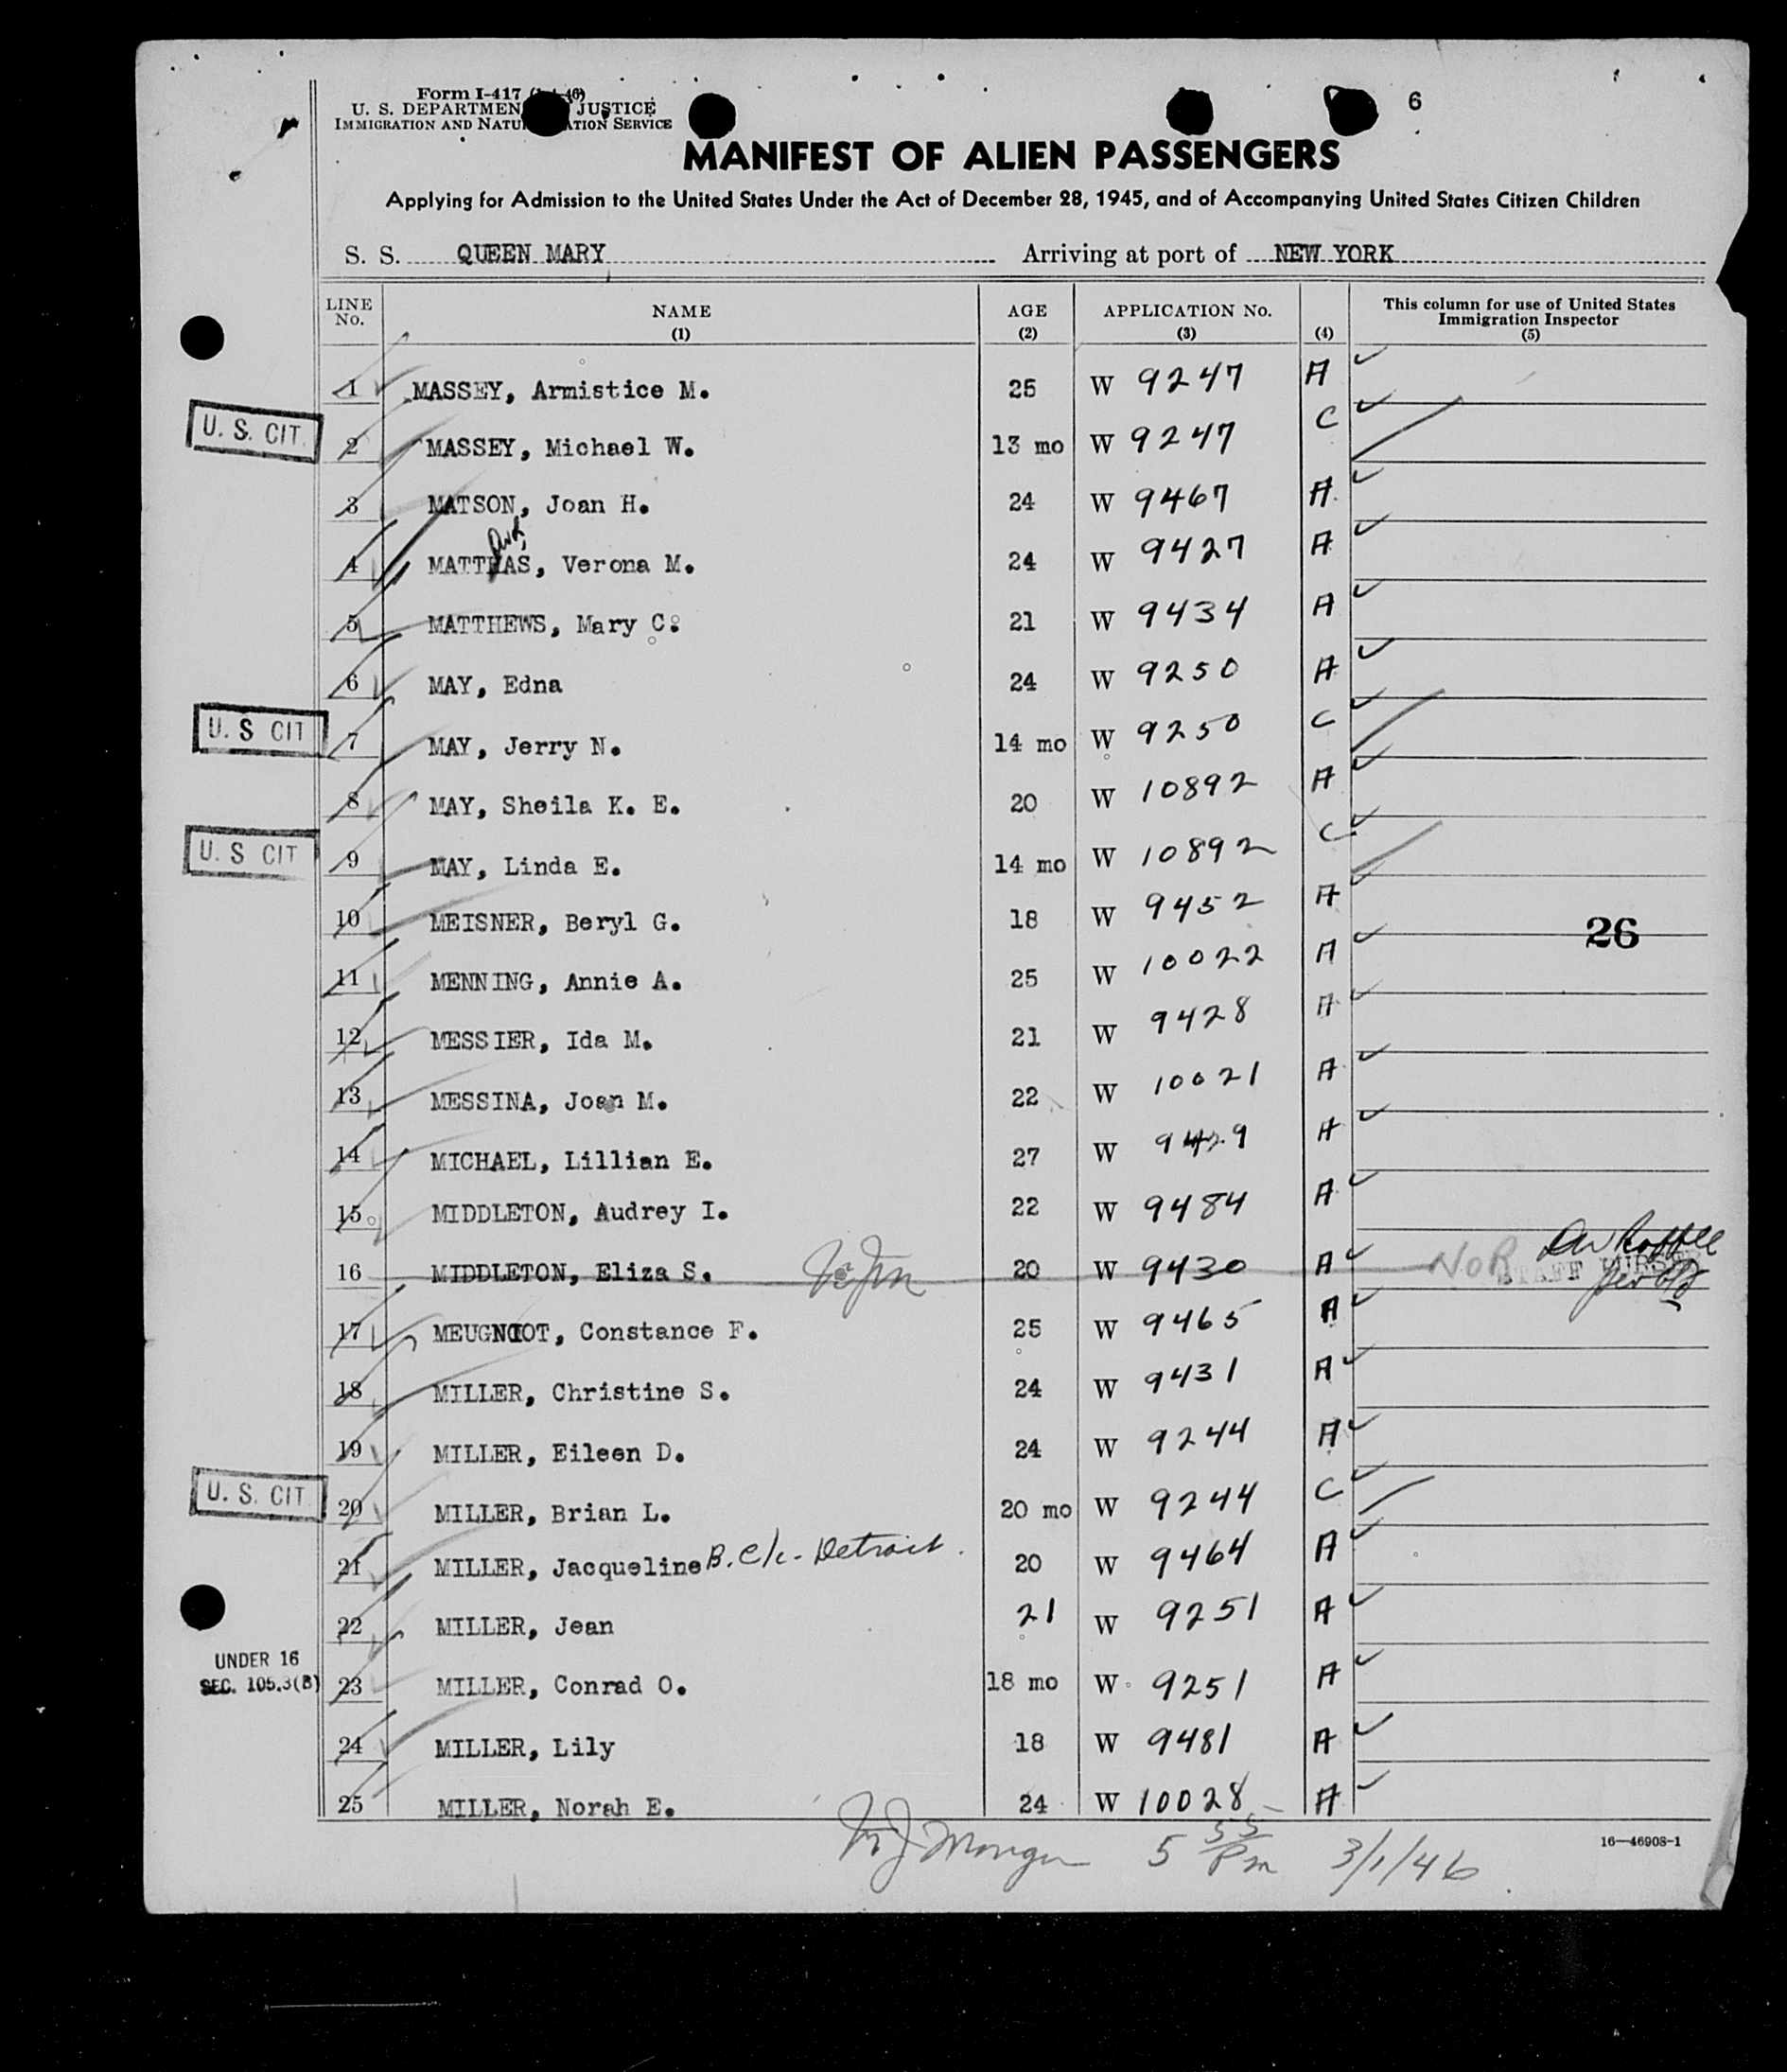 Form I-417
U. S. DEPARTMENT JUSTICE
IMMIGRATION AND NATURALIZATION SERVICE
6
MANIFEST OF ALIEN PASSENGERS
Applying for Admission to the United States Under the Act of December 28, 1945, and of Accompanying United States Citizen Children
S. S. QUEEN MARY Arriving at port of NEW YORK
LINE No. NAME (1) AGE (2) APPLICATION No. (3) (4) This column for use of United States Immigration Inspector (5)
1 MASSEY, Armistice M. 25 W 9247 A
U. S. CIT. 2 MASSEY, Michael W. 13 mo W 9247 C
3 MATSON, Joan H. 24 W 9467 A
4 MATTHAS, Verona M. 24 W 9427 A
5 MATTHEWS, Mary C. 21 W 9434 A
6 MAY, Edna 24 W 9250 A
U. S CIT 7 MAY, Jerry N. 14 mo W 9250 C
8 MAY, Sheila K. E. 20 W 10892 A
U. S CIT 9 MAY, Linda E. 14 mo W 10892 C
10 MEISNER, Beryl G. 18 W 9452 A
26
11 MENNING, Annie A. 25 W 10022 A
12 MESSIER, Ida M. 21 W 9428 A
13 MESSINA, Joan M. 22 W 10021 A
14 MICHAEL, Lillian E. 27 W 9429 A
15 MIDDLETON, Audrey I. 22 W 9484 A
16 MIDDLETON, Eliza S. 20 W 9430 A NOR STAFF PURSER
17 MEUGNIOT, Constance F. 25 W 9465 A
18 MILLER, Christine S. 24 W 9431 A
19 MILLER, Eileen D. 24 W 9244 A
U. S. CIT 20 MILLER, Brian L. 20 mo W 9244 C
21 MILLER, Jacqueline B. c/c - Detroit. 20 W 9464 A
22 MILLER, Jean 21 W 9251 A
UNDER 16
SEC. 105.3(B) 23 MILLER, Conrad O. 18 mo W 9251 A
24 MILLER, Lily 18 W 9481 A
25 MILLER, Norah E. 24 W 10028 A
5 55 Pm 3/1/46
16—46908-1